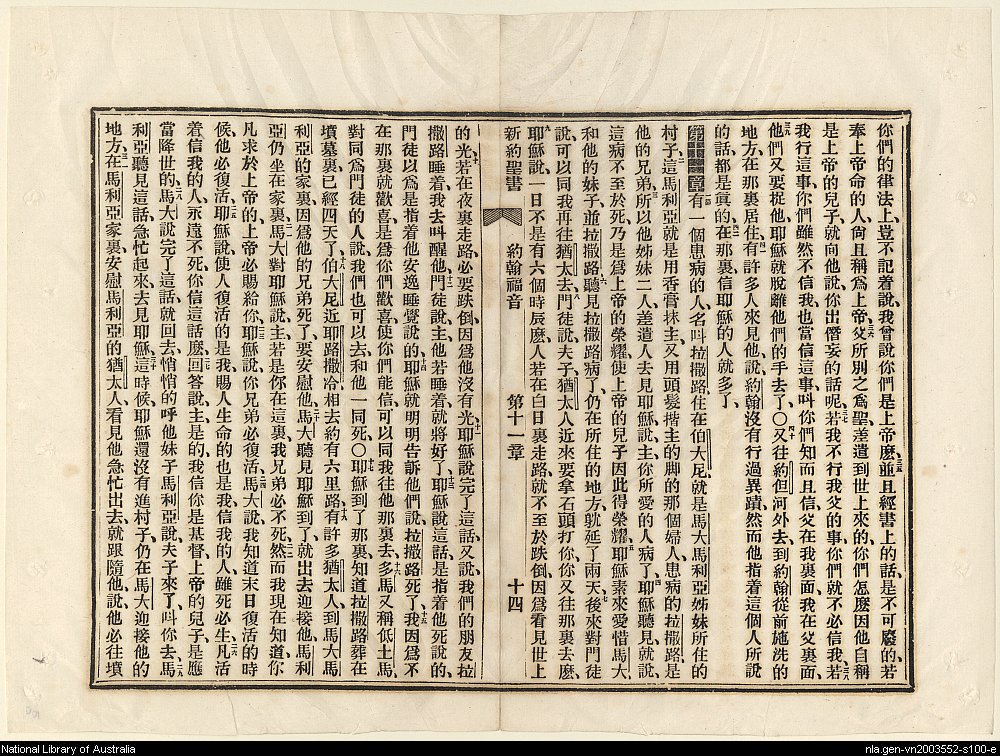 你們的律法上、豈不記着說、我曾說你們是上帝麽、並且經書上的話、是不可廢的、若
奉上帝命的人、尙且稱爲上帝、父所別之爲聖、差遣到世上來的、你們怎麽因他自稱
是上帝的兒子、就向他說、你出僭妄的話呢、若我不行我父的事、你們就不必信我、若
我行這事、你們雖然不信我、也當信這事、叫你們知而且信、父在我裏面、我在父裏面、
他們又要捉他、耶穌就脫離他們的手去了○又往約但河外去、到約翰從前施洗的
地方、在那裏居住、有許多人來見他、說、約翰沒有行過異蹟、然而他指着這個人所說
的話、都是眞的、在那裏信耶穌的人就多了、
第十一章有一個患病的人、名叫拉撒路、住在伯大尼、就是馬大馬利亞姊妹所住的
村子、這馬利亞就是用香膏抹主、又用頭髮揩主的脚的那個婦人、患病的拉撒路、是
他的兄弟、所以他姊妹二人差遣人去見耶穌說、主、你所愛的人病了、耶穌聽見就說、
這病不至於死、乃是爲上帝的榮耀、使上帝的兒子因此得榮耀、耶穌素來愛惜馬大
和他的妹子、並拉撒路、聽見拉撒路病了、仍在所住的地方、躭延了兩天、後來對門徒
說、可以同我再往猶太去、門徒說、夫子、猶太人近來要拿石頭打你、你又往那裏去麽、
耶穌說、一日不是有六個時辰麽、人若在白日裏走路、就不至於跌倒、因爲看見世上
新約聖書 約翰福音 第十一章 十四
的光、若在夜裏走路、必要跌倒、因爲他沒有光、耶穌說完了這話、又說、我們的朋友拉
撒路睡着、我去叫醒他、門徒說、主、他若睡着、就將好了、耶穌說這話、是指着他死說的、
門徒以爲是指着他安逸睡覺說的、耶穌就明明告訴他們說、拉撒路死了、我因爲不
在那裏、就歡喜、是爲你們歡喜、使你們能信、可以同我往他那裏去、多馬又稱低土馬、
對同爲門徒的人說、我們也可以去和他一同死○耶穌到了那裏、知道拉撒路葬在
墳墓裏、已經四天了、伯大尼近耶路撒冷、相去約有六里路、有許多猶太人到馬大馬
利亞的家裏、因爲他的兄弟死了、要安慰他、馬大聽見耶穌到了、就出去迎接他、馬利
亞仍坐在家裏、馬大對耶穌說、主若是你在這裏、我兄弟必不死、然而我現在知道、你
凡求於上帝的、上帝必賜給你、耶穌說、你兄弟必復活、馬大說、我知道末日復活的時
候、他必復活、耶穌說、使人復活的是我、賜人生命的也是我、信我的人、雖死必生、凡活
着信我的人、永遠不死、你信這話麽、回答說、主是的、我信你是基督、上帝的兒子、是應
當降世的、馬大說完了這話、就回去、悄悄的呼他妹子馬利亞說、夫子來了、叫你去、馬
利亞聽見這話、急忙起來、去見耶穌、這時候耶穌還沒有進村子、仍在馬大迎接他的
地方、在馬利亞家裏、安慰馬利亞的猶太人、看見他急忙出去、就跟隨他說、他必往墳
National Library of Australia
nla.gen-vn2003552-s100-e